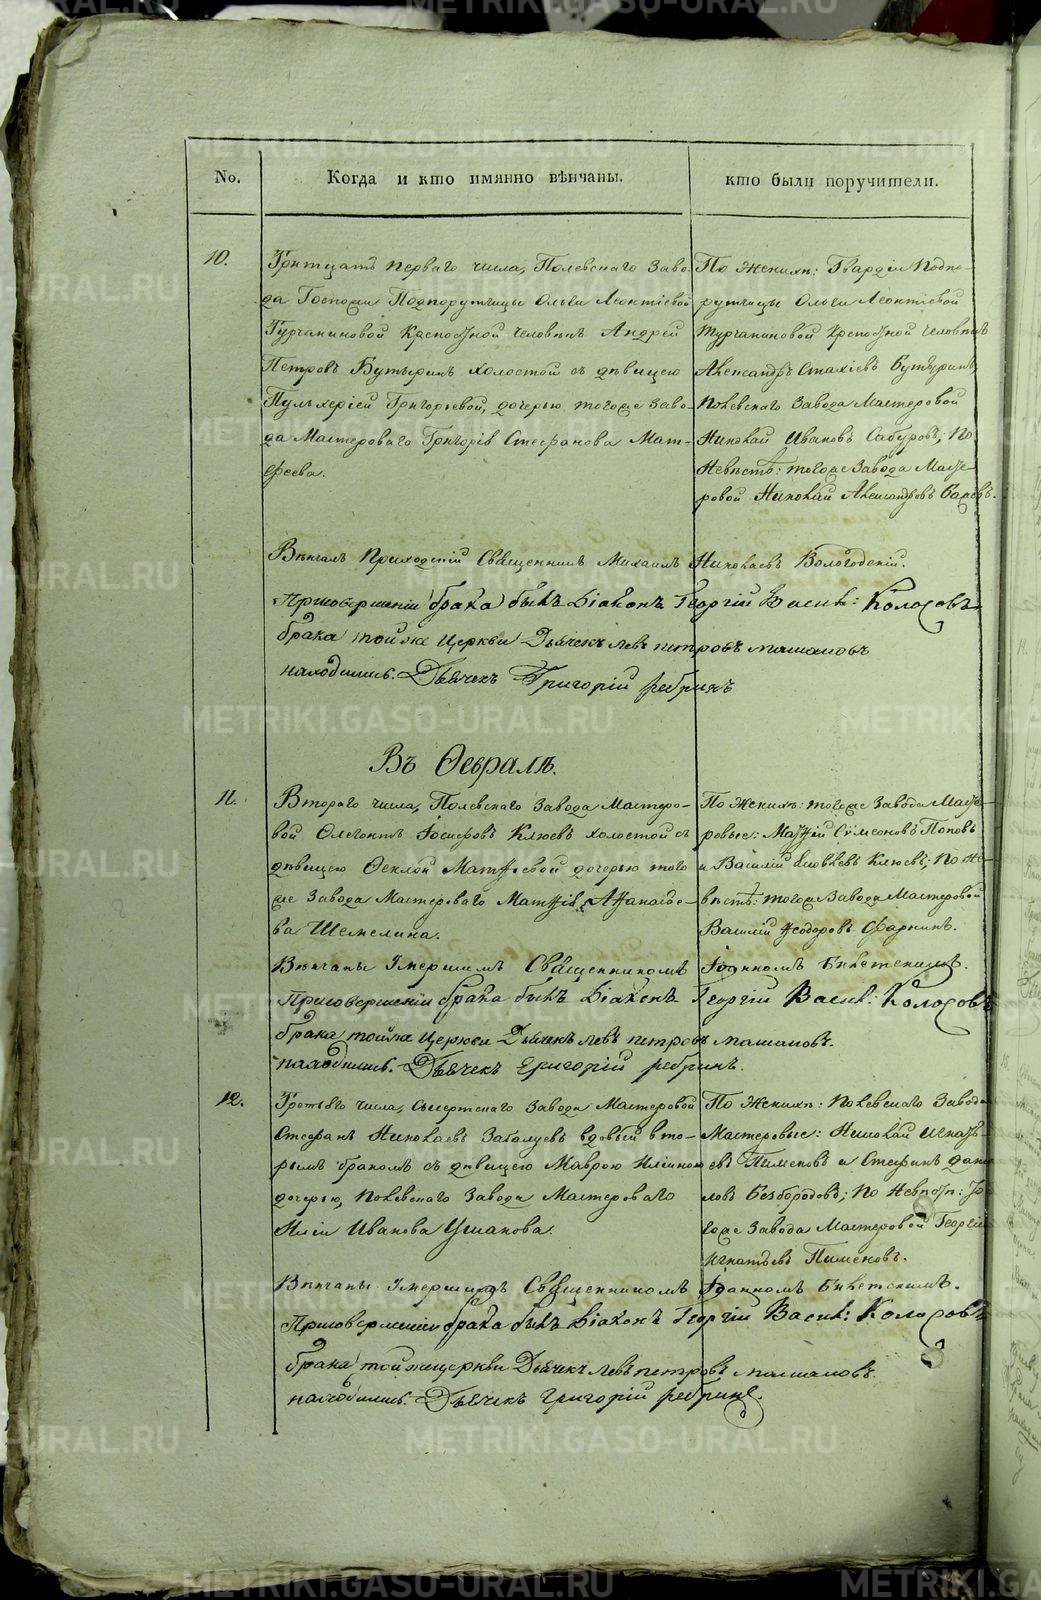 No.
Когда и кто имянно вѣнчаны.
кто были поручители.
10.
Тритцать перваго числа, Полевскаго Заво-
да Госпожи Подпорутчицы Ольги Леонтіевой
Турчаниновой Крепостной человѣкъ Андрей
Петровъ Бутыринъ холостой съ дѣвицею
Пульхеріей Григорьевой, дочерью тогоже Заво-
да Мастероваго Григорія Стефанова Мат-
феева.
По Женихѣ: Гвардіи Подпо-
рутчицы Ольги Леонтіевой
Турчаниновой Крепостной человѣкъ
Александръ Стахіевъ Бутыринъ,
Полевскаго Завода Мастеровой
Николай Ивановъ Сабуровъ; По
Невѣстѣ: тогоже Завода Масте-
ровой Николай Александровъ
Вѣнчалъ Приходскій Священникъ Михаилъ Николаевъ Вологодскій.
Присовершеніи брака былъ Діаконъ Георгій Васил: Колосовъ
брака тойже Церкви Дьячекъ Левъ петровъ
находились. Дьячекъ Григорій ребринъ
Въ Февралѣ.
11.
Втораго числа, Полевскаго Завода Мастеро-
вой Флегонтъ Іосифовъ Клюевъ холостой съ
дѣвицею Феклой Матѳіевой дочерью того
же Завода Мастероваго Матѳія Аѳанасье-
ва Шемелина.
По Женихѣ: тогоже Завода Масте-
ровые: Матѳій Сѵмеоновъ Поповъ
и Василій Яковлевъ Клюевъ; По Не-
вѣстѣ: тогоже Завода Мастеровой
Василій Ѳеодоровъ
Вѣнчаны Священникомъ Іоанномъ
Присовершеніи брака былъ Діаконъ Георгій Васил: Колосовъ
брака тойже Церкви Дьячекъ Левъ петровъ
находились. Дьячекъ Григорій ребринъ.
12.
Третьяго числа, Сысертскаго Завода Мастеровой
Стефанъ Николаевъ вдовый вто-
рымъ бракомъ съ дѣвицею Маврою Иліиною
дочерью, Полевскаго Завода Мастероваго
Иліи Иванова Ушакова.
По Женихѣ: Полевскаго Завода
Мастеровые: Николай Игнать-
евъ Пименовъ и Стефанъ Дани-
ловъ Безбородовъ; По Невѣстѣ: То-
гоже Завода Мастеровой Георгій
Игнатьевъ Пименовъ.
Вѣнчаны Священникомъ Іоанномъ
Присовершеніи брака былъ Діаконъ Георгій Васил: Колосовъ
брака тойже церкви Дьячекъ Левъ петровъ
находились. Дьячекъ григорій ребринъ.
METRIKI.GASO-URAL.RU